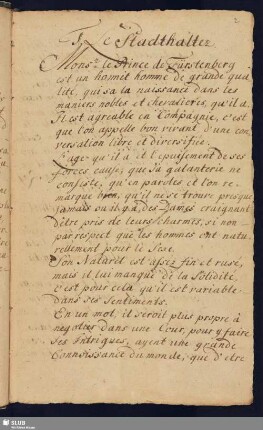 2
Le Stadthalter
Monsr. le Prince de Fürstenberg
est un honnet homme de grande qua
lité, qui sa la naissance dans les
maniers nobles et chevalieres, qu'il a.
Il est agreable en Compagnie, c'est
que l'on appelle bon vivant d'une con
versation libre et diversifiée.
L'age qu'il a et l'epuisement de ses
forces cause, que sa galanterie ne
consiste, qu'en paroles et l'on re
marque bien, qu'il ne se trouve presque
jamais ou il y a des Dames craignant
d'etre pris de leurs charmes, si non
par respect que les hommes ont natu
rellement pour le Sexe.
Son Naturel est assez fin et rusé,
mais il lui manque de la Solidité,
c'est pour cela, qu'il est variable
dans ses Sentiments.
En un mot, il seroit plus propre à
negotier dans une Cour, pour y faire
ses Intrigues, ayent une grande
Connoissance du monde, que d'etre
SLUB